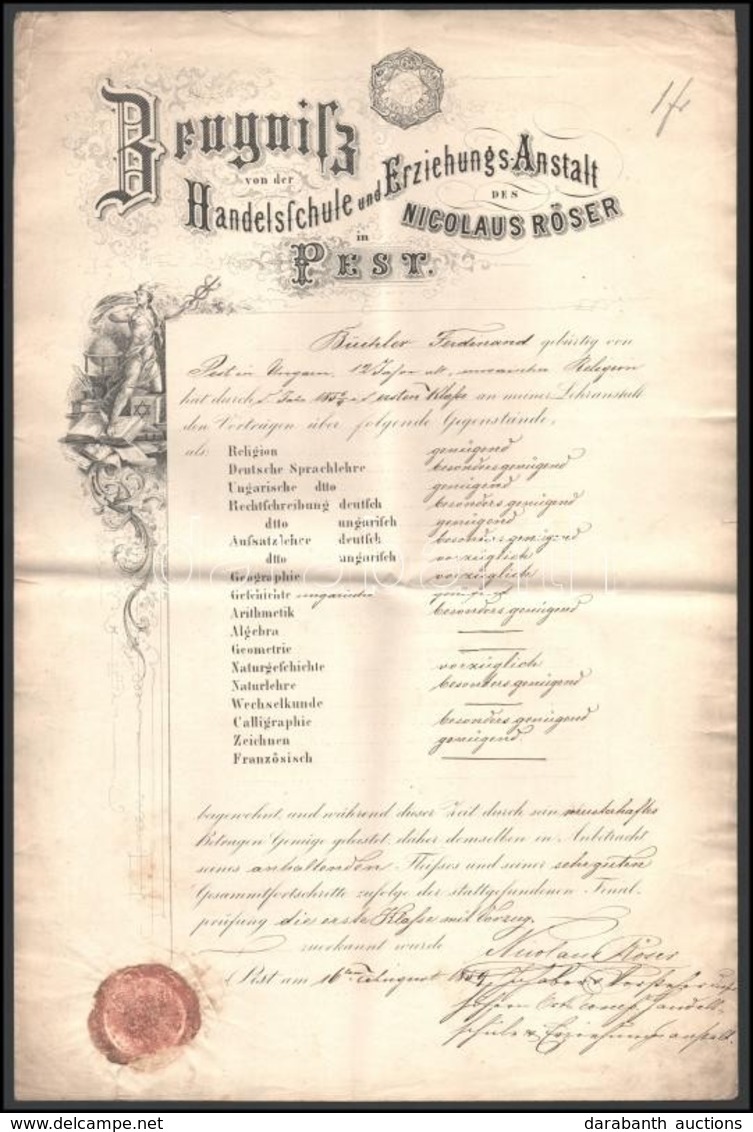 1 fr
Zeugniſz
von der
Handelsſchule und Erziehungs-Anstalt
DES
NICOLAUS RÖSER
in
PEST.
Büchler Ferdinand gebürtig von
Pest in Ungarn, 12 Jahre alt, Religion
hat durch ersten Klaſse an meiner Lehranstalt
den Vorträgen über folgende Gegenstände,
als: Religion genügend
Deutsche Sprachlehre besonders genügend
Ungarische dtto genügend
Rechtſchreibung deutſch besonders genügend
dtto ungariſch genügend
Aufsatzlehre deutſch besonders genügend
dtto ungariſch vorzüglich
Geographie vorzüglich
Geſchichte ungarische
Arithmetik besonders genügend
Algebra
Geometrie
Naturgeſchichte vorzüglich
Naturlehre besonders genügend
Wechselkunde
Calligraphie besonders genügend
Zeichnen genügend
Franzöſisch
beigewohnt, und während dieser Zeit durch sein musterhaftes
Betragen Genüge geleistet, daher demselben in Anbetracht
seines anhaltenden Fleiſses und seiner sehr guten
Gesammtfortschritte zufolge der stattgefundenen Final-
prüfung die erste Klaſse mit Vorzug.
zuerkannt wurde
Nicolaus Röser
Pest am 16ten August Inhaber u. Vorsteher
Handels-
schule u. Erziehungsanstalt.
darabanth auctions